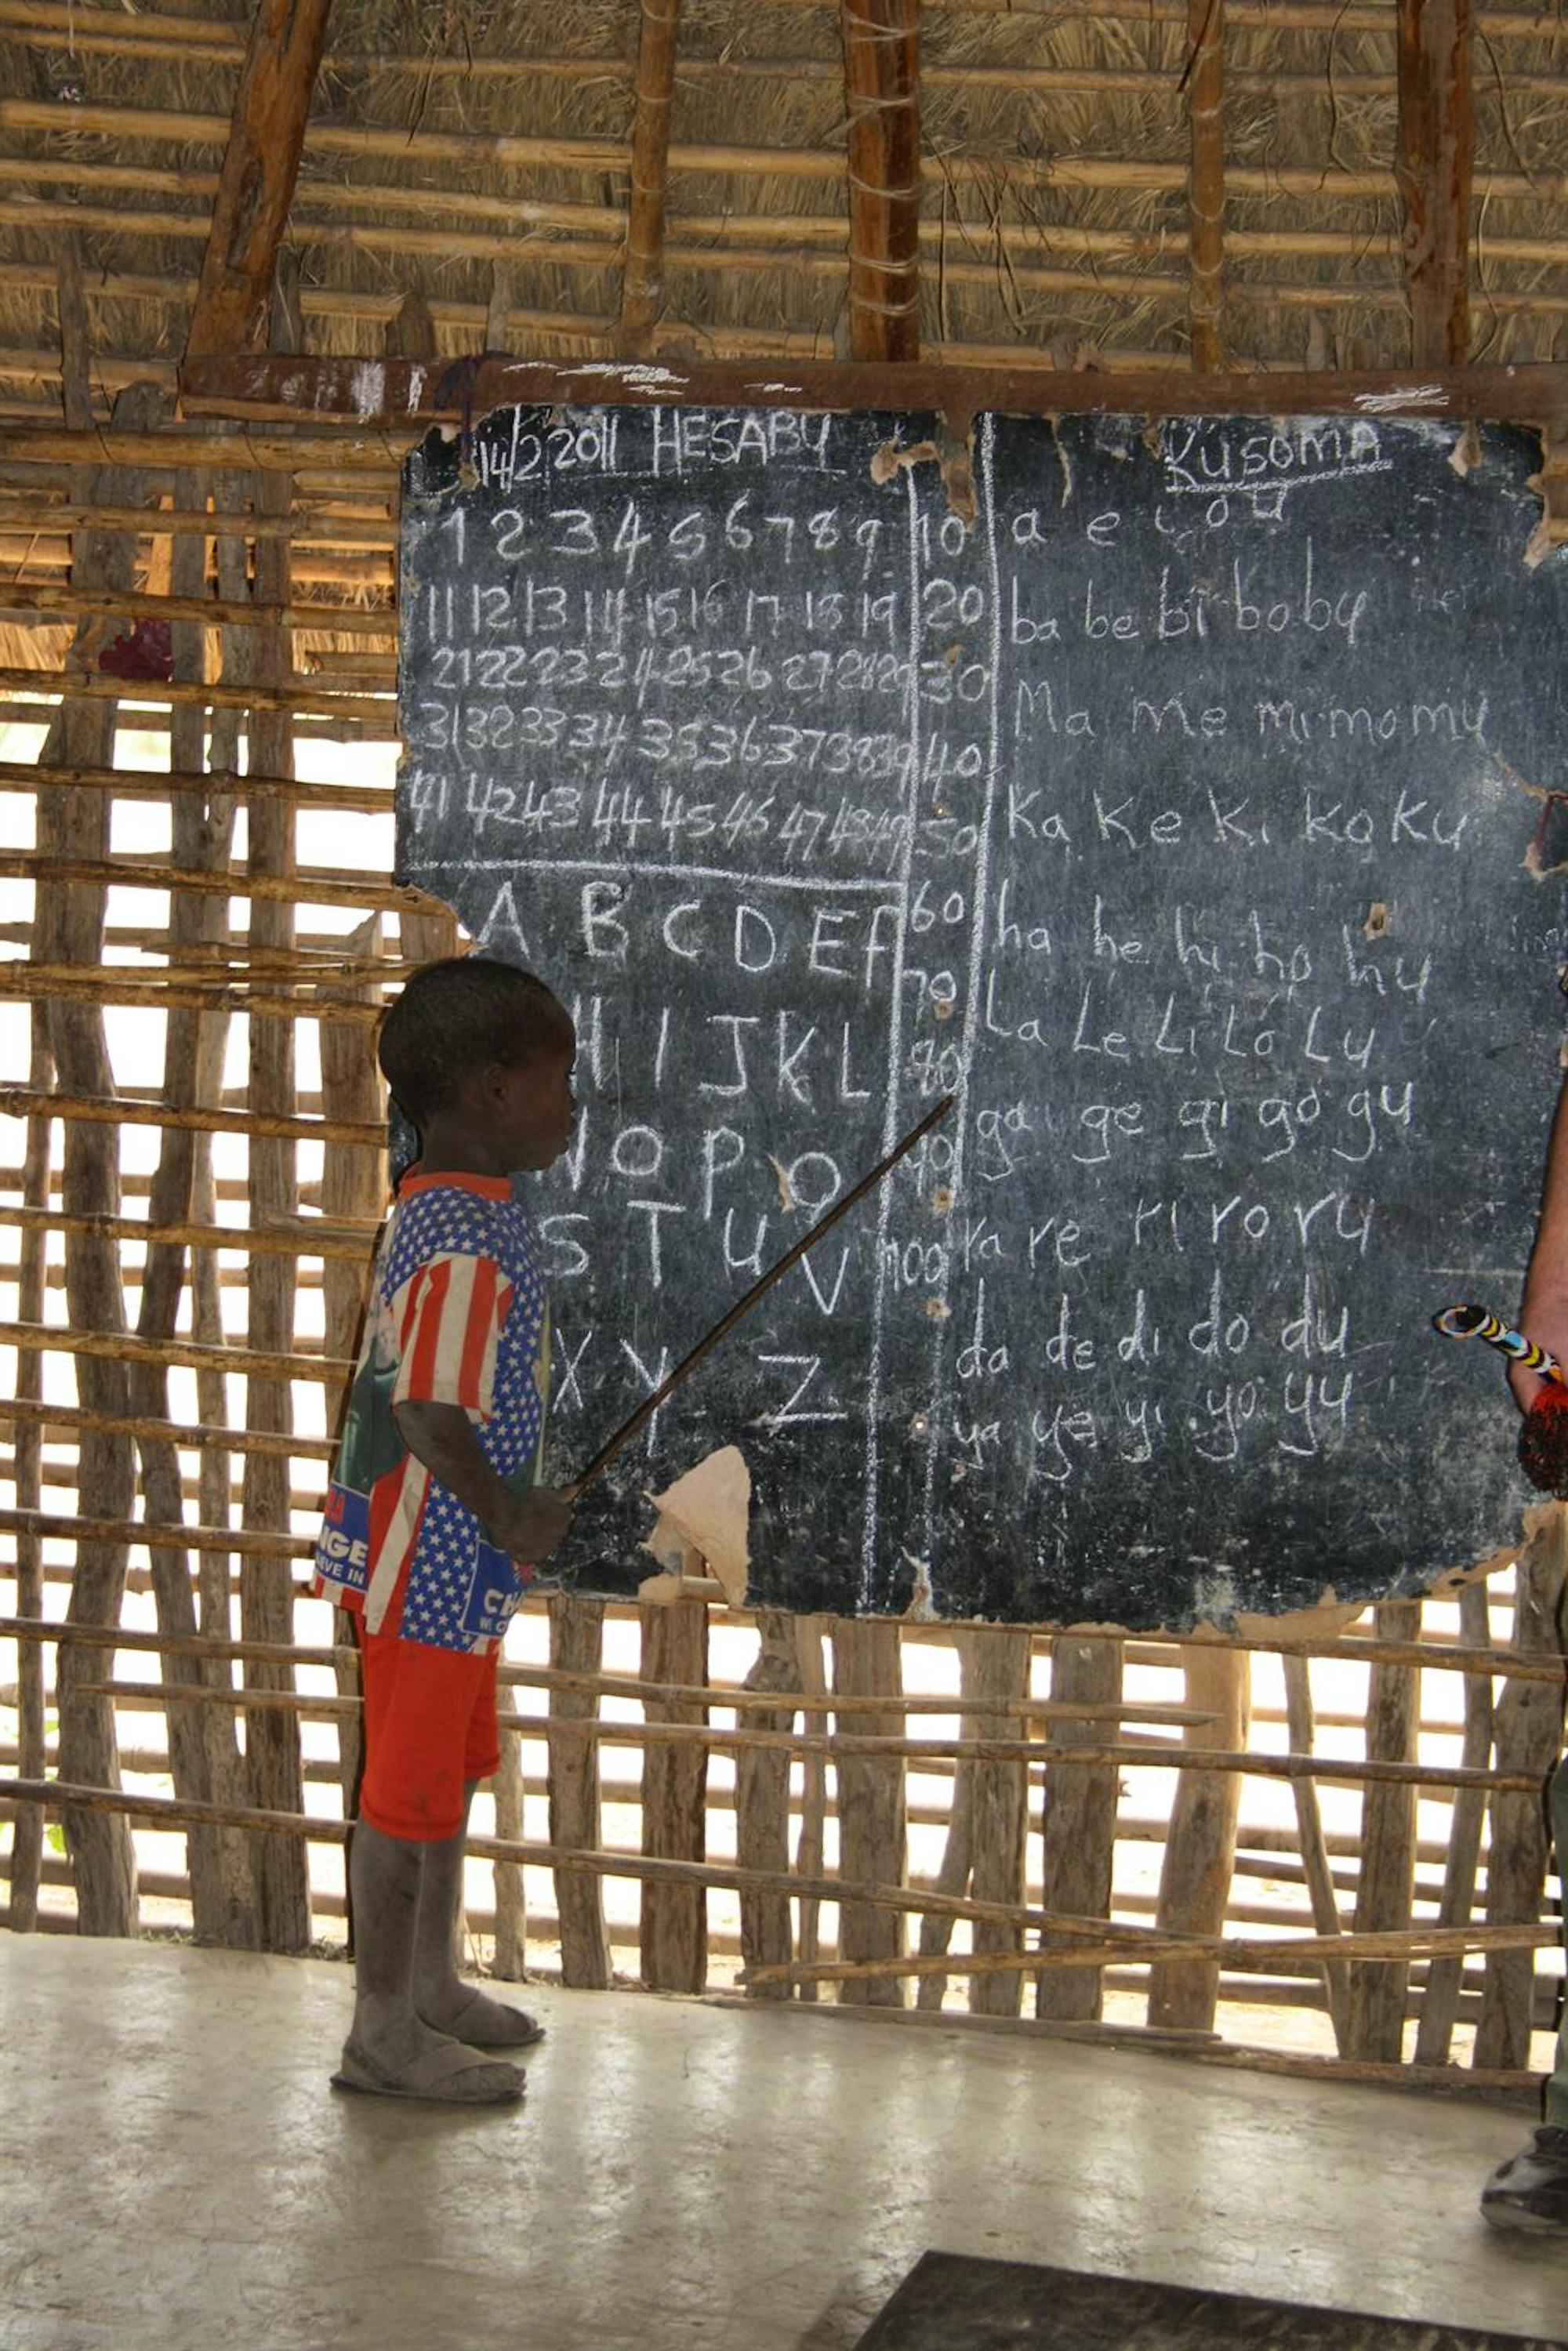 14/2 2011 HESABU
1 2 3 4 5 6 7 8 9 10
11 12 13 14 15 16 17 18 19 20
21 22 23 24 25 26 27 28 29 30
31 32 33 34 35 36 37 38 39 40
41 42 43 44 45 46 47 48 49 50
A B C D E f 60
70
H I J K L 80
N O P Q 90
S T U V 100
X Y Z
KUSOMA
a e i o u
ba be bi bo bu
Ma me mi mo mu
Ka Ke Ki ko Ku
ha he hi ho hu
La Le Li Lo Lu
ga ge gi go gu
ra re ri ro ru
da de di do du
ya ye yi yo yu
NGE
EVE IN
CH